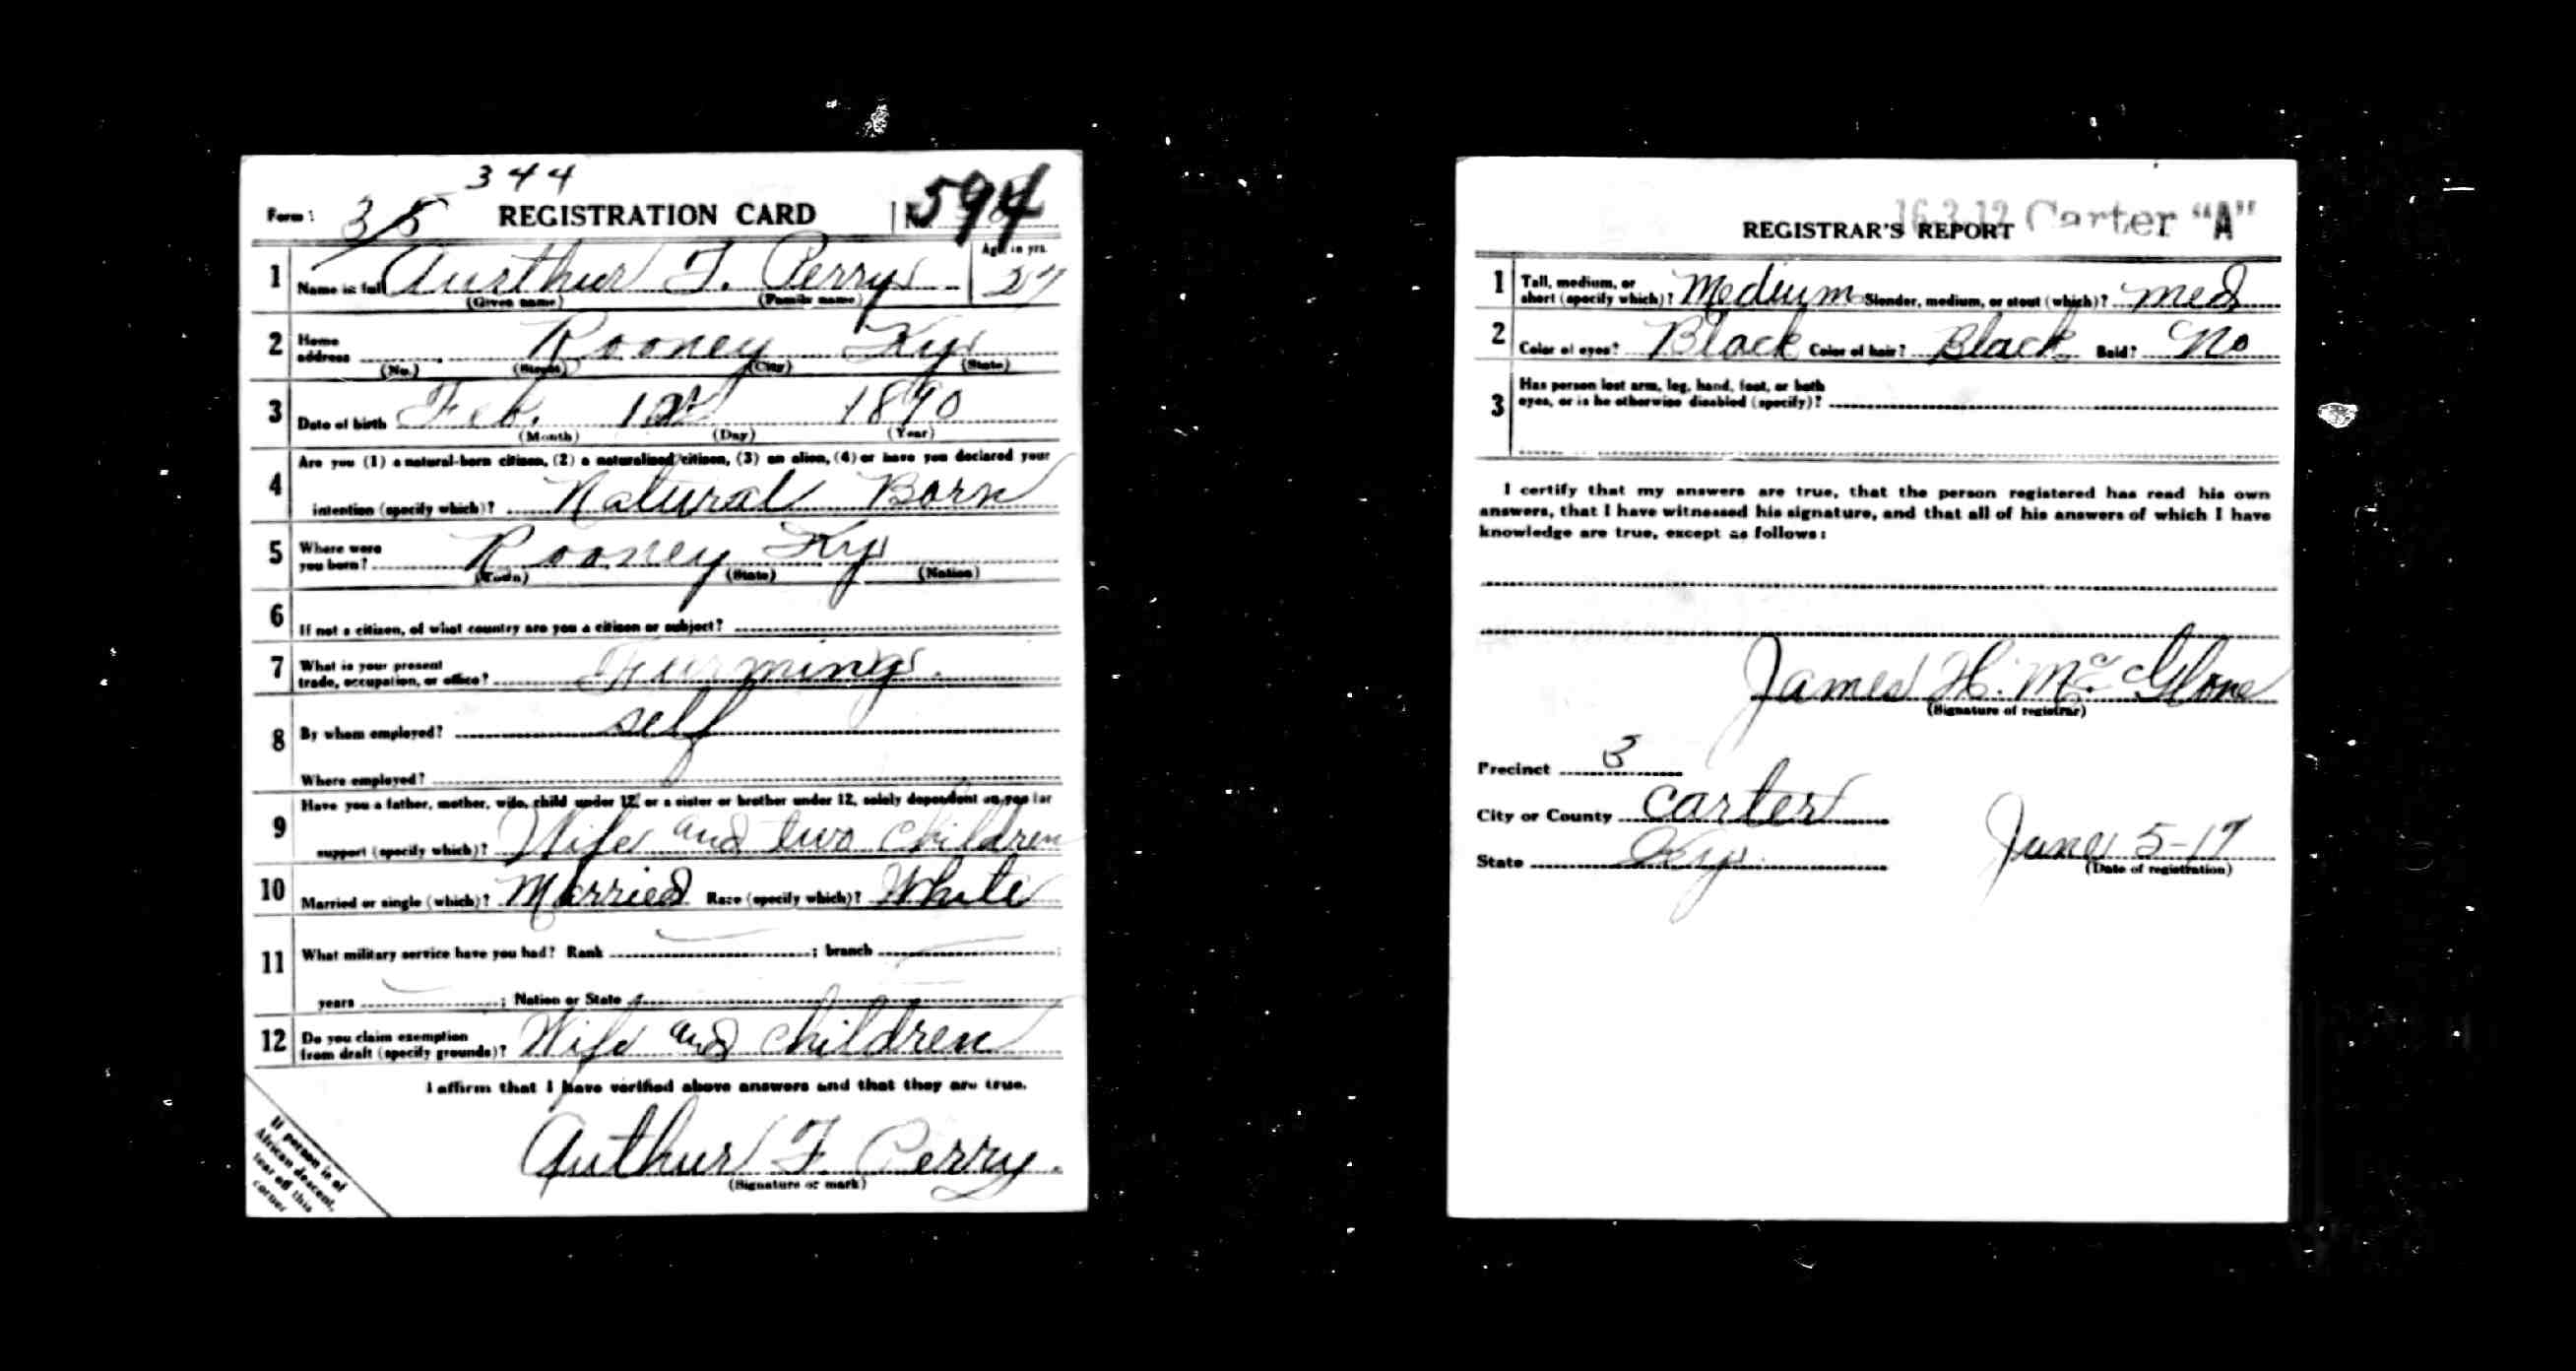 344
Form 1 3/5 REGISTRATION CARD No. 594
1 Name in full Aurthur F. Perry Age in yrs. 27
(Given name) (Family name)
2 Home address Rooney Ky
(No.) (Street) (City) (State)
3 Date of birth Feb. 1890
(Month) (Day) (Year)
4 Are you (1) a natural-born citizen, (2) a naturalized citizen, (3) an alien, (4) or have you declared your
intention (specify which)? Natural Born
5 Where were you born? Rooney Ky
(Town) (State) (Nation)
6 If not a citizen, of what country are you a citizen or subject?
7 What is your present trade, occupation, or office? Farming
8 By whom employed? self
Where employed?
9 Have you a father, mother, wife, child under 12, or a sister or brother under 12, solely dependent on you for
support (specify which)? Wife and two children
10 Married or single (which)? Married Race (specify which)? White
11 What military service have you had? Rank ; branch ;
years ; Nation or State
12 Do you claim exemption from draft (specify grounds)? Wife and children
I affirm that I have verified above answers and that they are true.
Authur F. Perry.
(Signature or mark)
If person is of
African descent,
tear off this
corner
16-3-12 Carter "A"
REGISTRAR'S REPORT
1 Tall, medium, or short (specify which)? Medium Slender, medium, or stout (which)? med
2 Color of eyes? Black Color of hair? Black Bald? No
3 Has person lost arm, leg, hand, foot, or both
eyes, or is he otherwise disabled (specify)?
I certify that my answers are true, that the person registered has read his own
answers, that I have witnessed his signature, and that all of his answers of which I have
knowledge are true, except as follows:
James H. McGlone
(Signature of registrar)
Precinct 3
City or County Carter
State Ky.
June 5-17
(Date of registration)